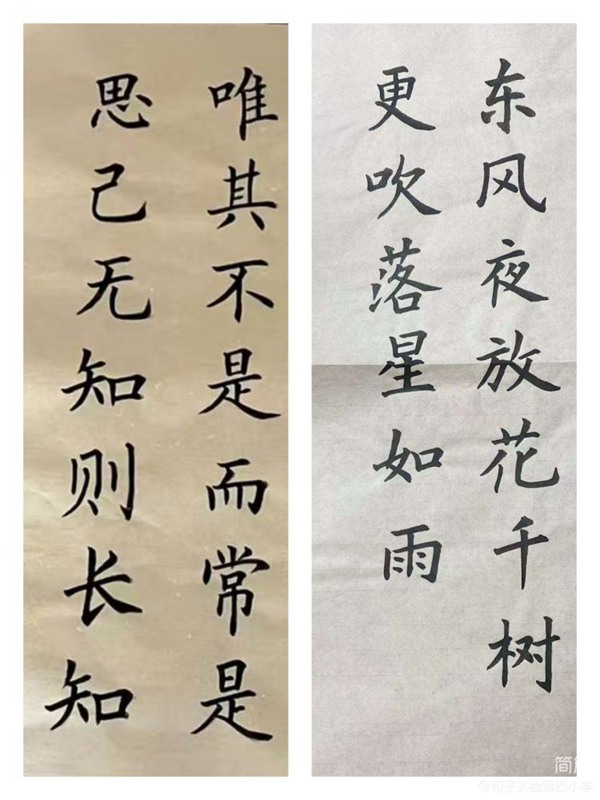 唯其不是而常是
思己无知则长知
东风夜放花千树
更吹落星如雨